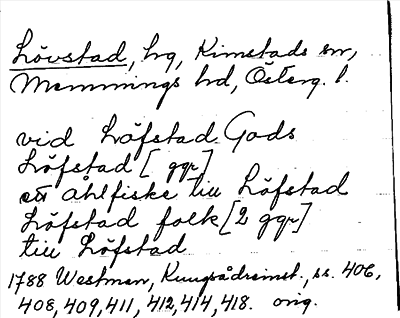 Lövstad, hg, Kimstads sn,
Memmings hd, Österg. l.
vid Löfstad Gods
Löfstad [ ggr]
ett åhlfiske till Löfstad
Löfstad folk [2 ggr]
till Löfstad
1788 Westman, Kungsådreinst., ss. 406,
408, 409, 411, 412, 414, 418. orig.